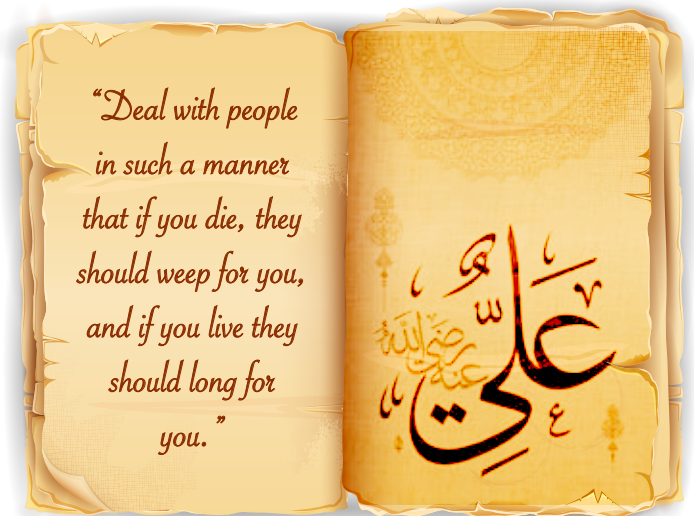 “Deal with people
in such a manner
that if you die, they
should weep for you,
and if you live they
should long for
you.”
عَلِيٌّ
رَضِيَ اللهُ
عَنْهُ